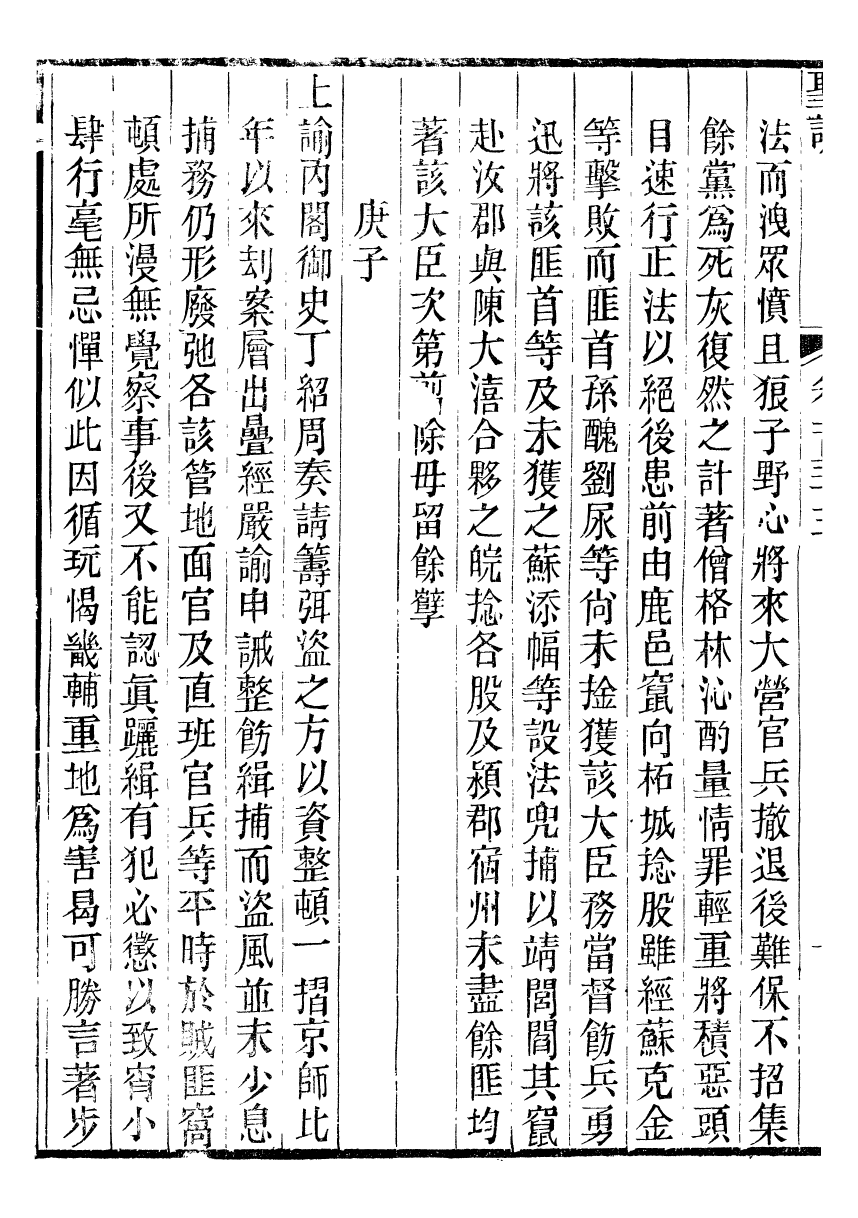 聖訓
法而洩眾憤且狼子野心將來大營官兵撤退後難保不招集
餘黨爲死灰復然之計著僧格林沁酌量情罪輕重將積惡頭
目速行正法以絕後患前由鹿邑竄向柘城捻股雖經蘇克金
等擊敗而匪首孫醜劉尿等尙未捡獲該大臣務當督飭兵勇
迅將該匪首等及未獲之蘇添幅等設法兜捕以靖閭閻其竄
赴汝郡與陳大濇合夥之皖捻各股及潁郡宿州未盡餘匪均
著該大臣次第剪除毋留餘孽
庚子
上諭內閣御史丁紹周奏請籌弭盜之方以資整頓一摺京師比
年以來刦案層出疊經嚴諭申誡整飭緝捕而盜風並未少息
捕務仍形廢弛各該管地面官及直班官兵等平時於賊匪窩
頓處所漫無覺察事後又不能認眞躧緝有犯必懲以致宵小
肆行毫無忌憚似此因循玩愒畿輔重地爲害曷可勝言著步